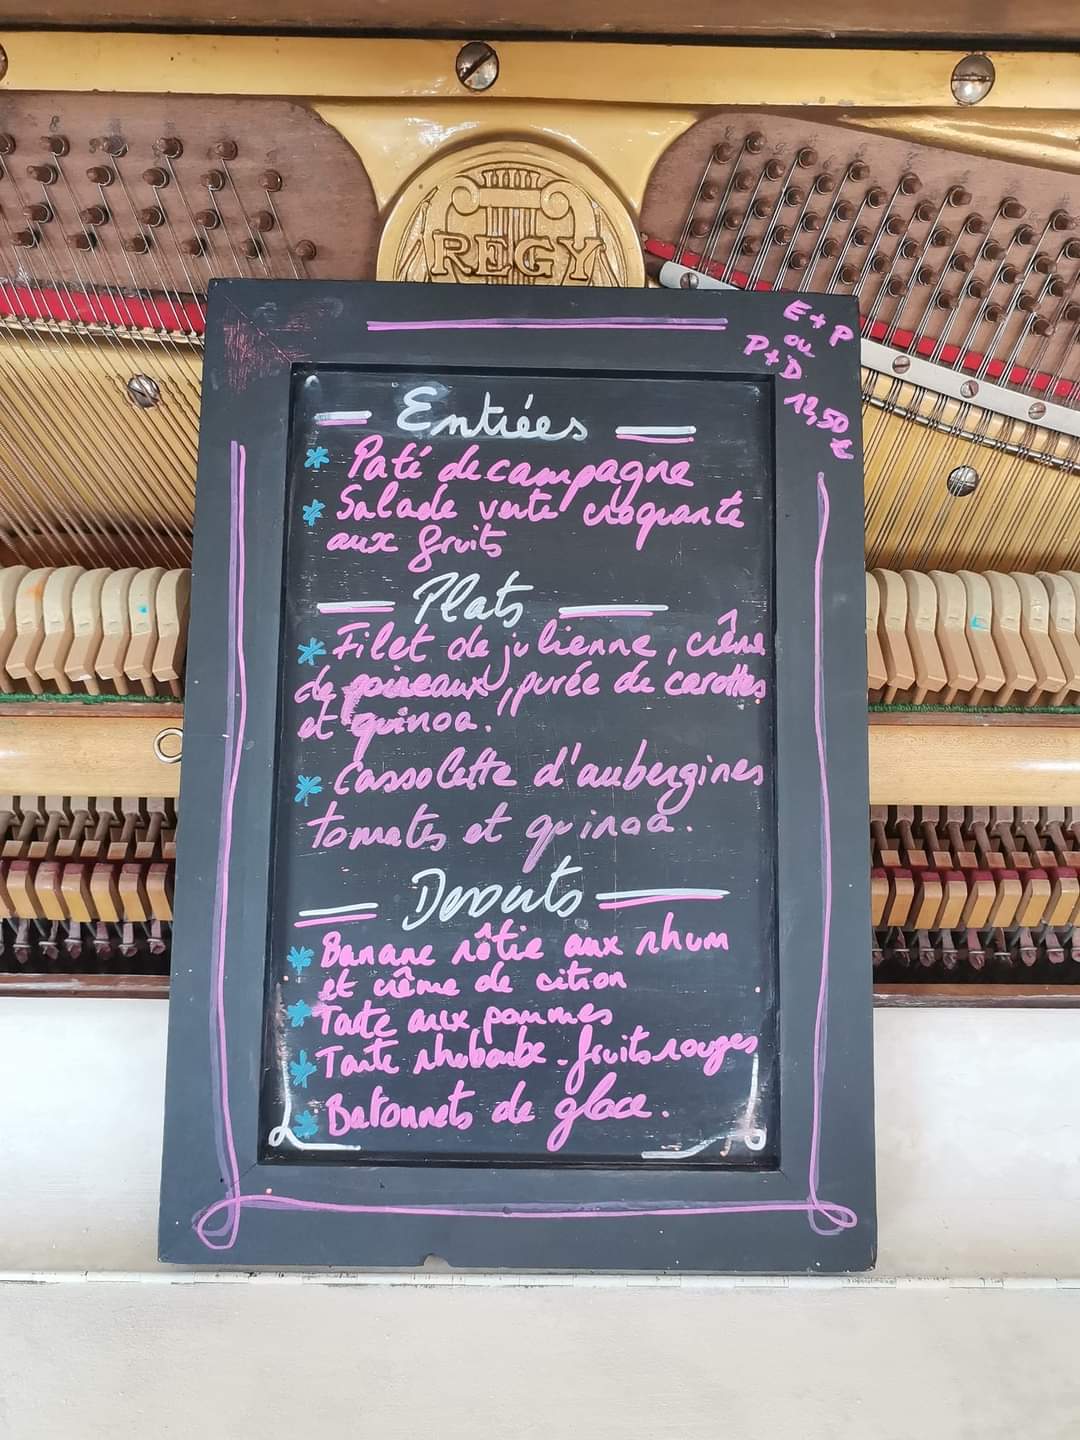 REGY
E + P
ou
P + D
12,50
€
Entrées
* Paté de campagne
* Salade verte croquante
aux fruits
Plats
* Filet de julienne, crème
de poireaux, purée de carottes
et quinoa.
* Cassolette d'aubergines
tomates et quinoa.
Desserts
* Banane rôtie aux rhum
et crème de citron
* Tarte aux pommes
* Tarte rhubarbe - fruits rouges
* Batonnets de glace.